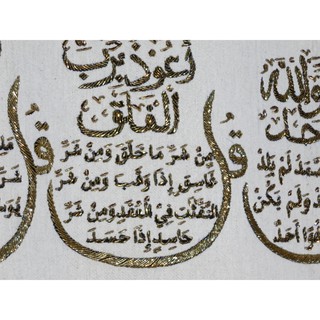 قل
أعوذ برب
الفلق
من شر ما خلق ومن شر
غاسق إذا وقب ومن شر
النفثت في العقد ومن شر
حاسد إذا حسد
قل
والله
حد
مد لم يلد
د ولم يكن
فوا أحد